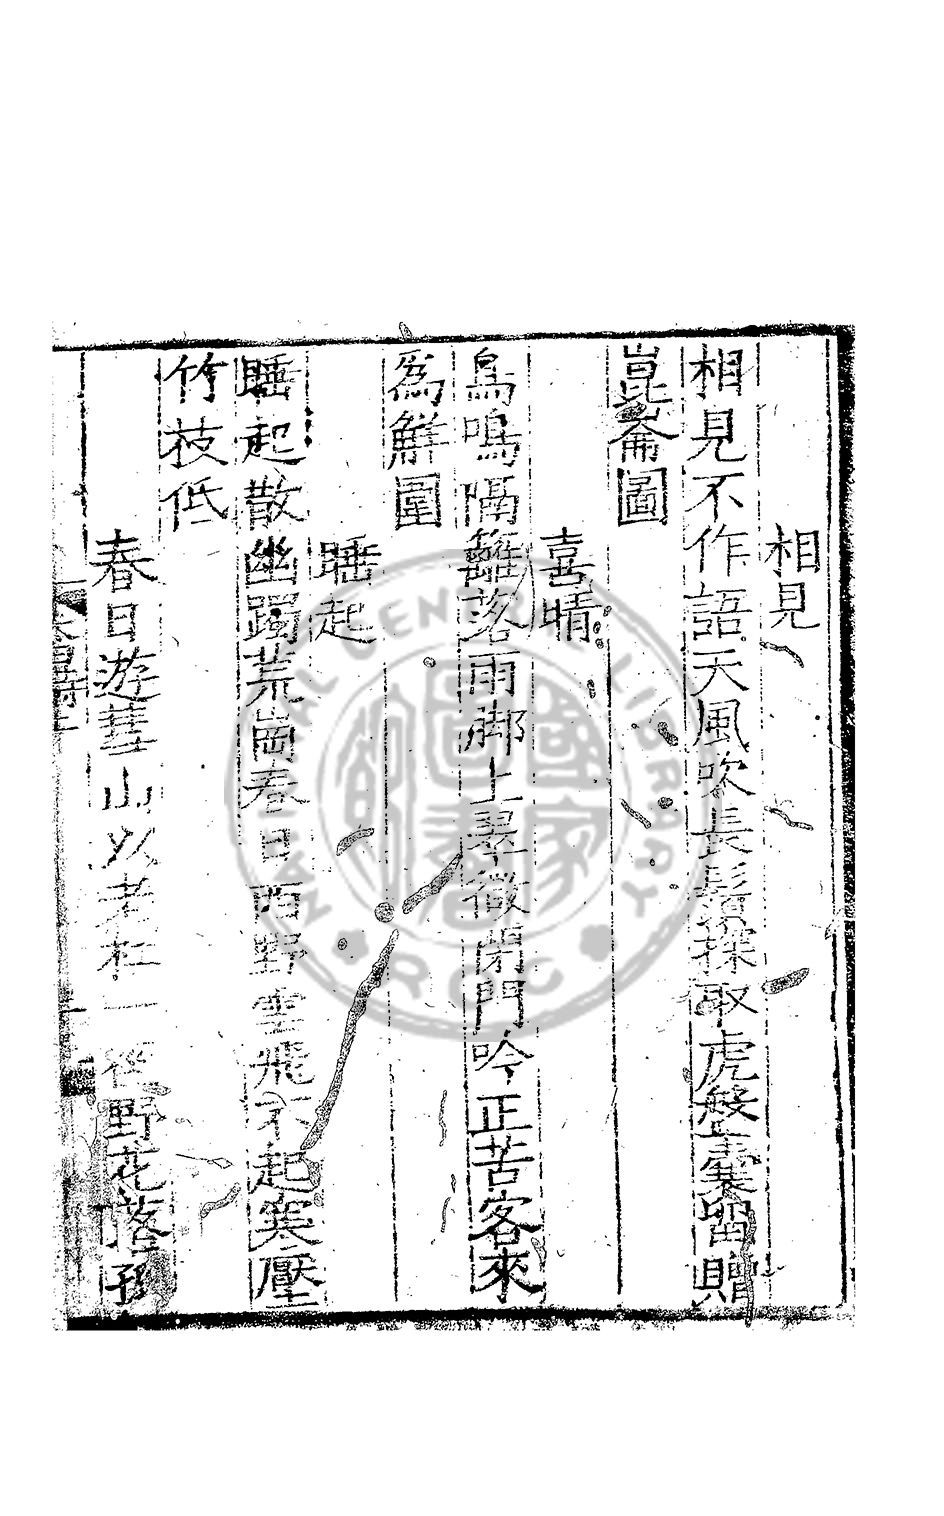 相見
相見不作語天風吹長鬚探取虎鞶囊留贈
崑崙圖
喜晴
鳥鳴隔籬落雨脚上翠微閉門吟正苦客來
爲解圍
睡起
睡起散幽躅荒崗春日西野雲飛不起寒壓
竹枝低
春日遊華山以老杜一徑野花落孤
NATIONAL CENTRAL LIBRARY
ROC
國家圖書館